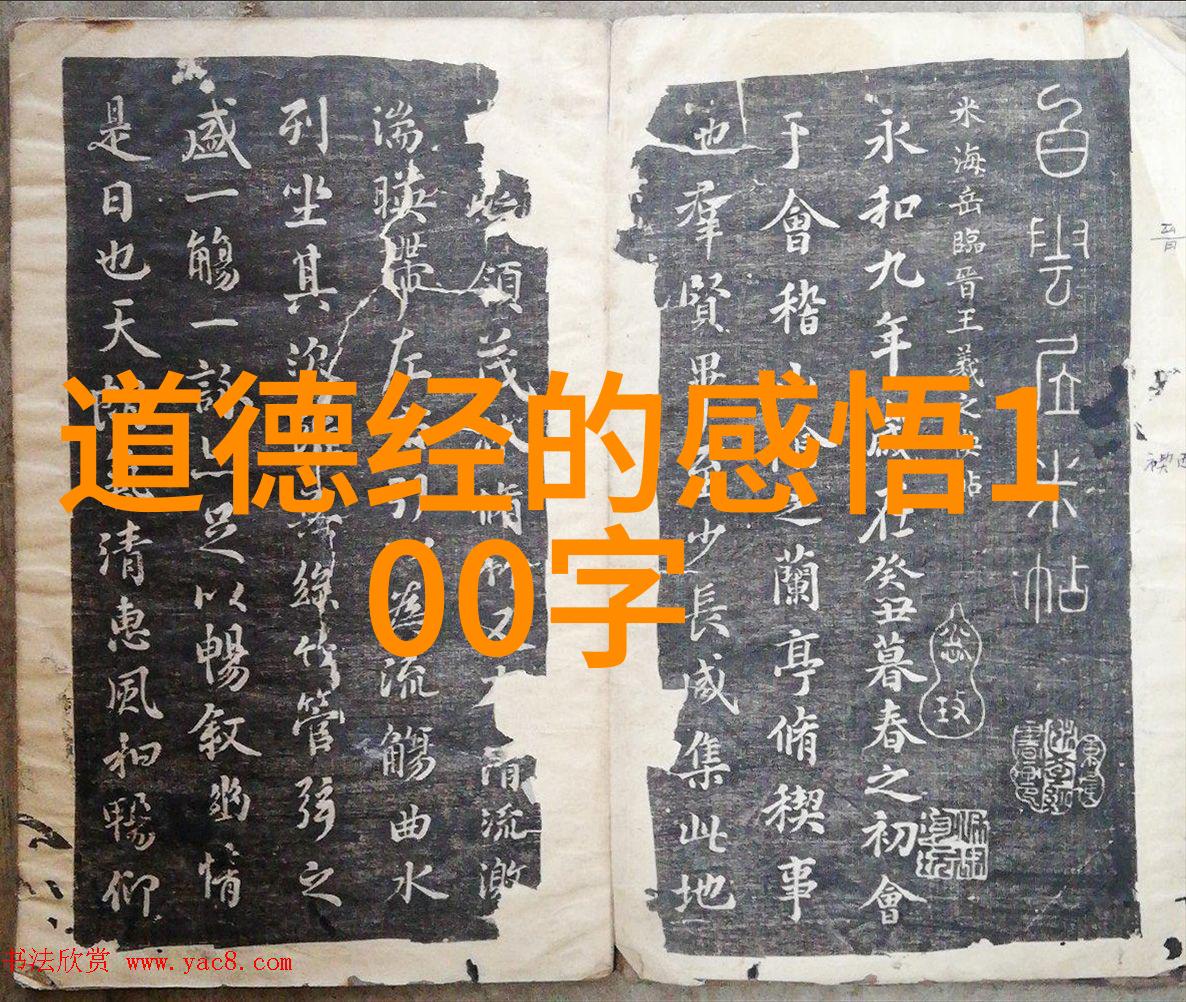 道德经的感悟1
00字
白雲居米帖
米海岳臨晉王羲之禊帖
永和九年歲在癸丑暮春之初會
于會稽山陰之蘭亭脩稧事
也羣賢畢至少長咸集此地
領茂林脩竹又有清流激
湍暎帶左右引以為流觴曲水
列坐其次雖無絲竹管弦之
盛一觴一詠亦足以暢叙幽情
是日也天朗氣清惠風和暢仰
书法欣赏 www.yac8.com